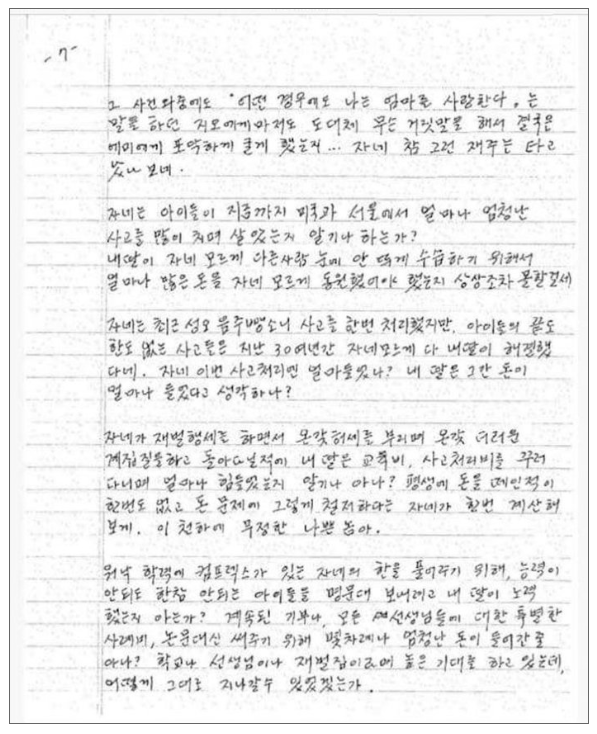 -7-
그 사건 와중에도 "어떤 경우에도 나는 엄마를 사랑한다" 는
말을 하던 지모에게마저도 도대체 무슨 거짓말을 해서 결국은
에미에게 포악하게 굴게 했는지... 자네 참 그런 재주는 타고
났나 보네.
자네는 아이들이 지금까지 미국과 서울에서 얼마나 엄청난
사고를 많이 치며 살았는지 알기나 하는가?
내딸이 자네 모르게 다른사람 눈에 안 띄게 수습하기 위해서
얼마나 많은 돈을 자네 모르게 동원했어야 했는지 상상조차 못할걸세
자네는 최근 성오 음주뺑소니 사고를 한번 처리했지만, 아이들의 끝도
한도 없는 사고들은 지난 30여년간 자네모르게 다 내딸이 해결했
다네. 자네 이번 사고처리엔 얼마들었나? 내 딸은 그간 돈이
얼마나 들었다고 생각하나?
자네가 재벌행세를 하면서 온갖허세를 부리며 온갖 더러운
계집질을하고 돌아다닐적에 내 딸은 교육비, 사고처리비를 꾸러
다니며 얼마나 힘들었는지 알기나 아나? 평생에 돈을 떼인적이
한번도 없고 돈 문제에 그렇게 철저하다는 자네가 한번 계산해
보게. 이 천하에 무정한 나쁜 놈아.
워낙 학력에 컴프렉스가 있는 자네의 한을 풀어주기 위해, 능력이
안되도 한참 안되는 아이들을 명문대 보내려고 내 딸이 노력
했는지 아는가? 계속된 기부나, 모든 선생님들에 대한 특별한
사례며, 논문대신 써주기 위해 몇차례나 엄청난 돈이 들어간줄
아나? 학교나 선생님이나 재벌집이라며 높은 기대를 하고 있는데,
어떻게 그대로 지나갈수 있었겠는가.